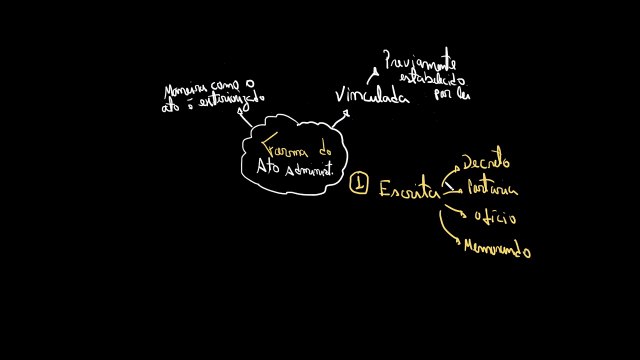 Maneira como o
ato é exteriorizado
Previamente
estabelecido
por lei
Vinculada
Forma do
Ato Administ.
1 Escrita
Decreto
Portaria
Ofício
Memorando